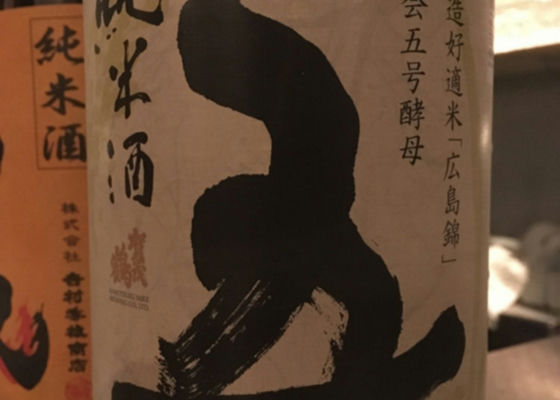 造好適米「広島錦」
会五号酵母
五
純米酒
賀茂鶴
KAMOTSURU SAKE
BREWING CO., LTD
純米酒
株式会社 吉村秀雄商店